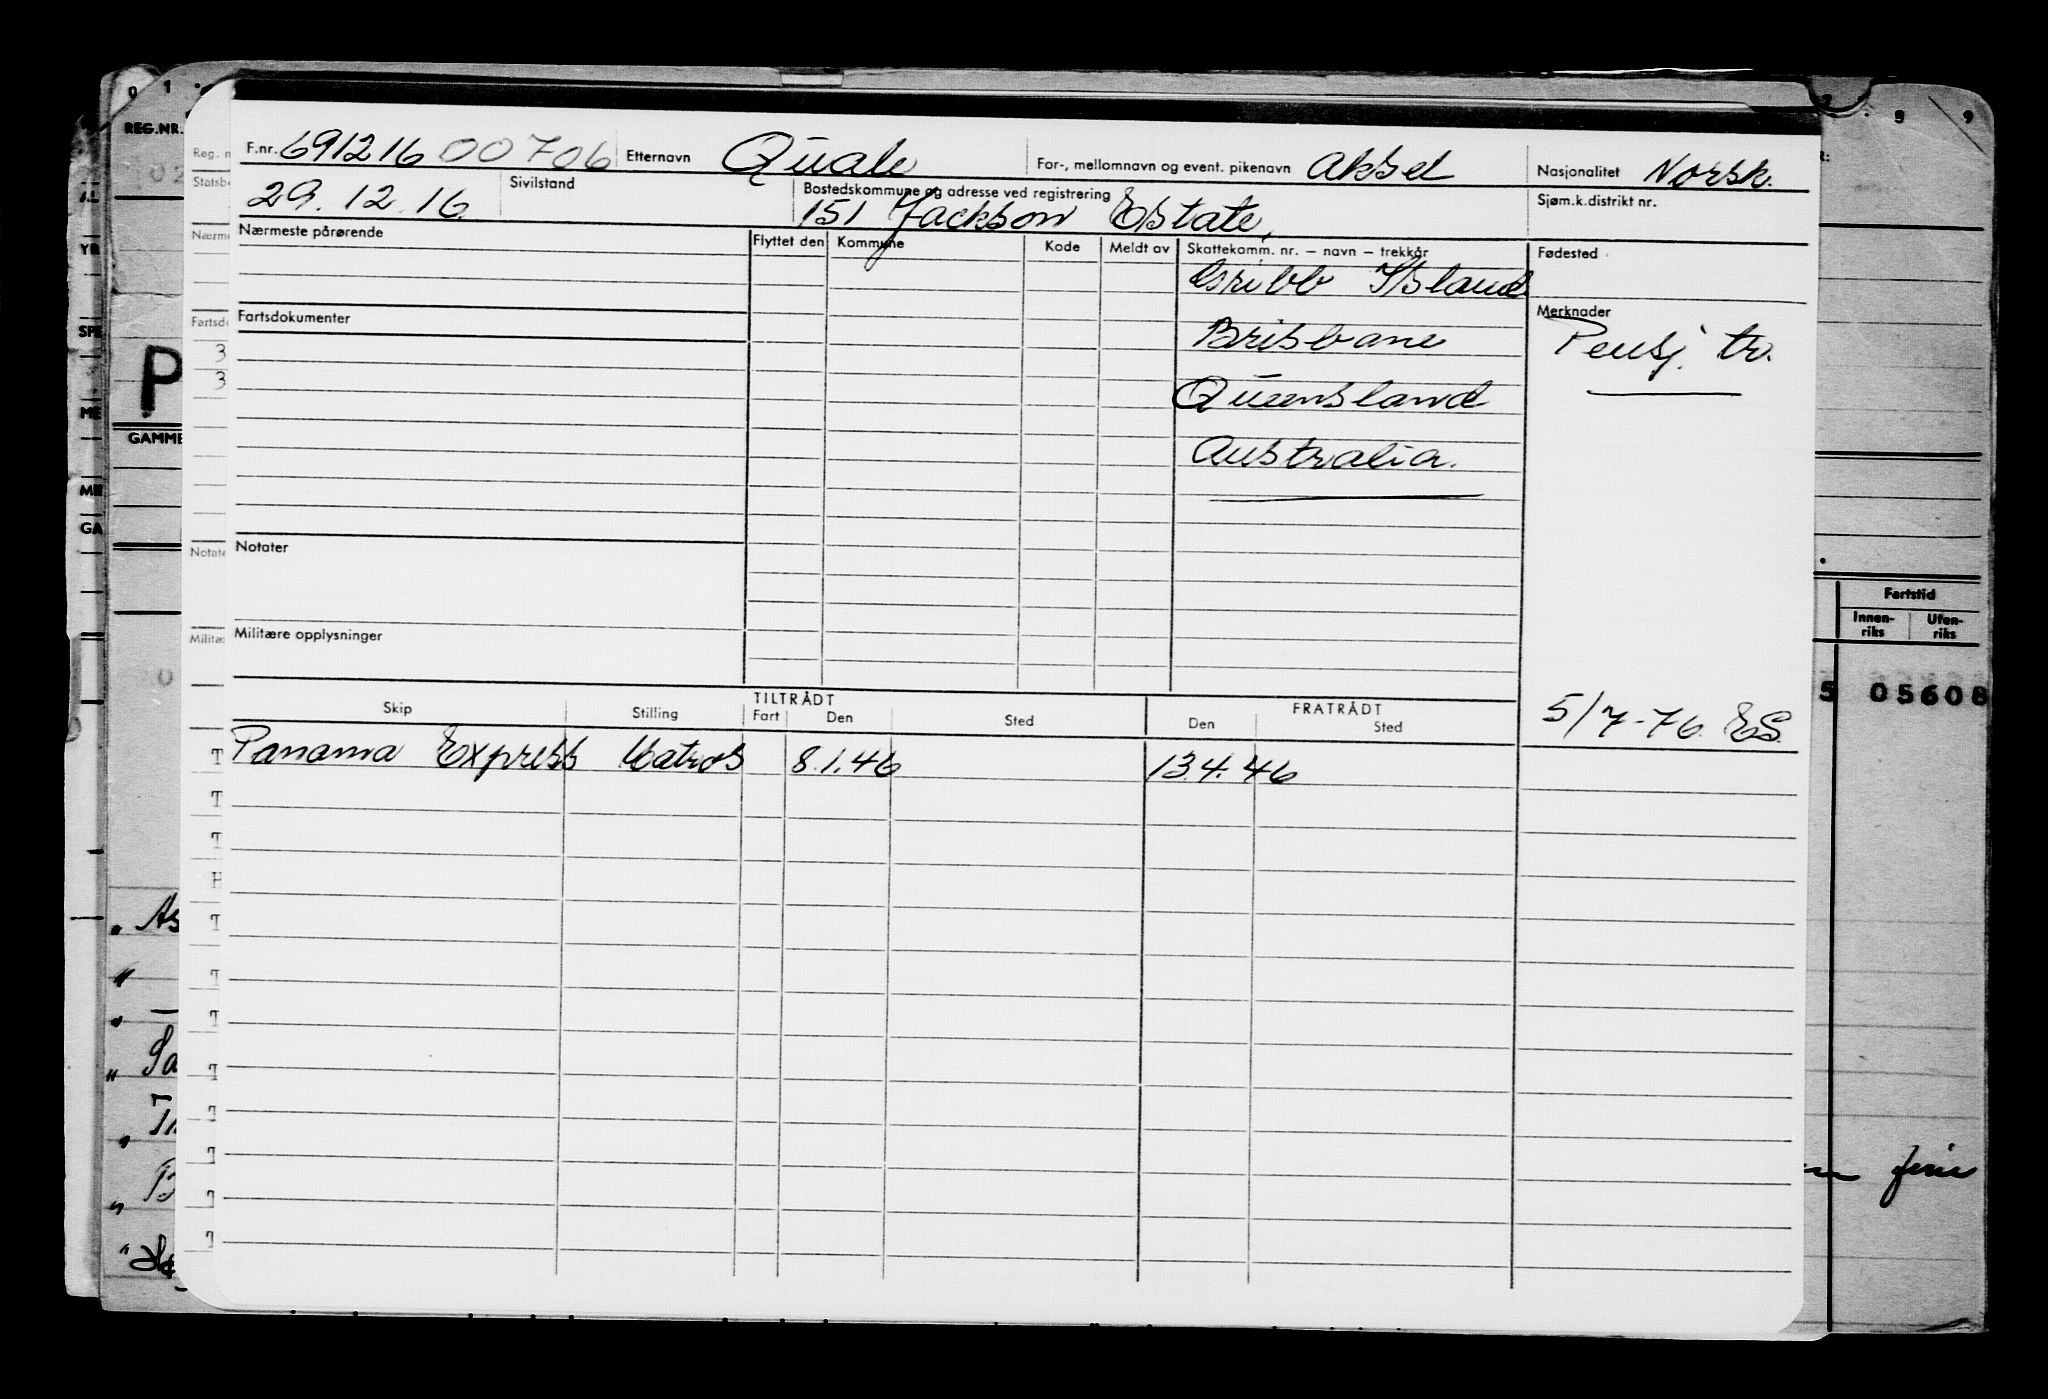 F.nr. 691216 00706 Etternavn Quale For-, mellomnavn og event. pikenavn Aksel Nasjonalitet Norsk.
29.12.16 Sivilstand Bostedskommune og adresse ved registrering 151 Jackson Estate, Sjøm.k.distrikt nr.
Nærmeste pårørende Flyttet den Kommune Kode Meldt av Skattekomm. nr. – navn – trekkår Fødested
Gribb Island
Fartsdokumenter Merknader
Brisbane Pensj. tr.
Queensland
Australia.
Notater
Militære opplysninger
TILTRÅDT FRATRÅDT
Skip Stilling Fart Den Sted Den Sted 5/7-76 ES.
Panama Express Matros 8.1.46 13.4.46
REG.NR.
GAMME
Fartstid
Innen-riks Uten-riks
5 05608